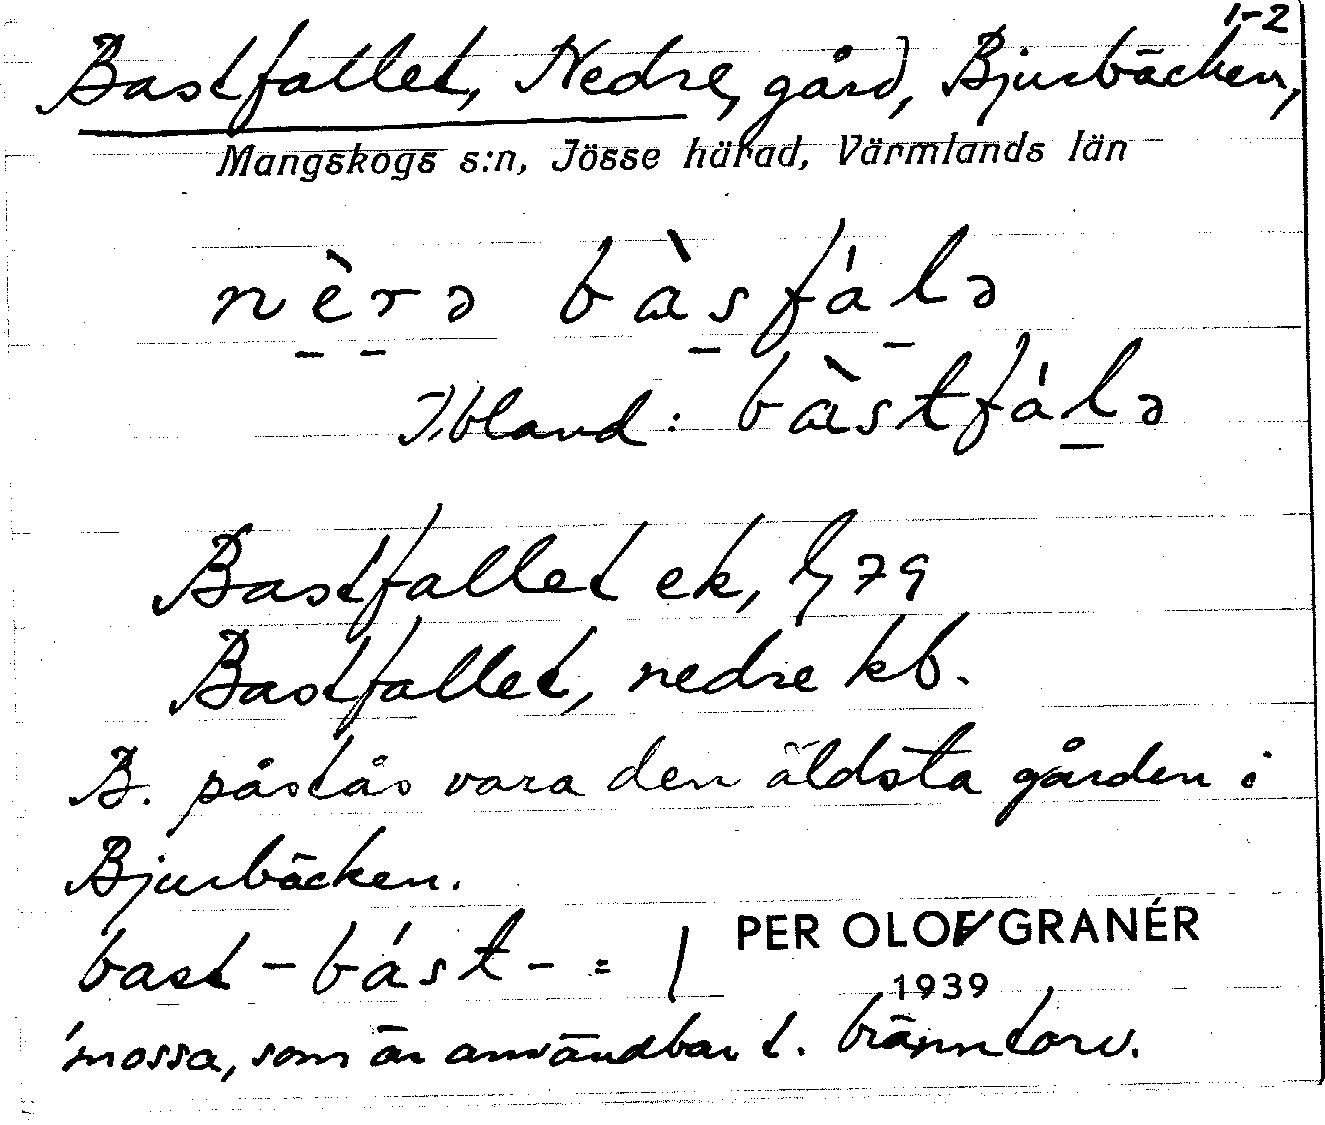 1-2
Bastfallet, Nedre, gård, Bjurbäcken,
Mangskogs s:n, Jösse härad, Värmlands län
nèrə bàsfálə
Ibland: bàstfálə
Bastfallet ek, 79
Bastfallet, nedre kb.
B. påstås vara den äldsta gården i
Bjurbäcken.
bast - bást - =
PER OLOF GRANÉR
1939
'mossa, som är användbar t. bränntorv.